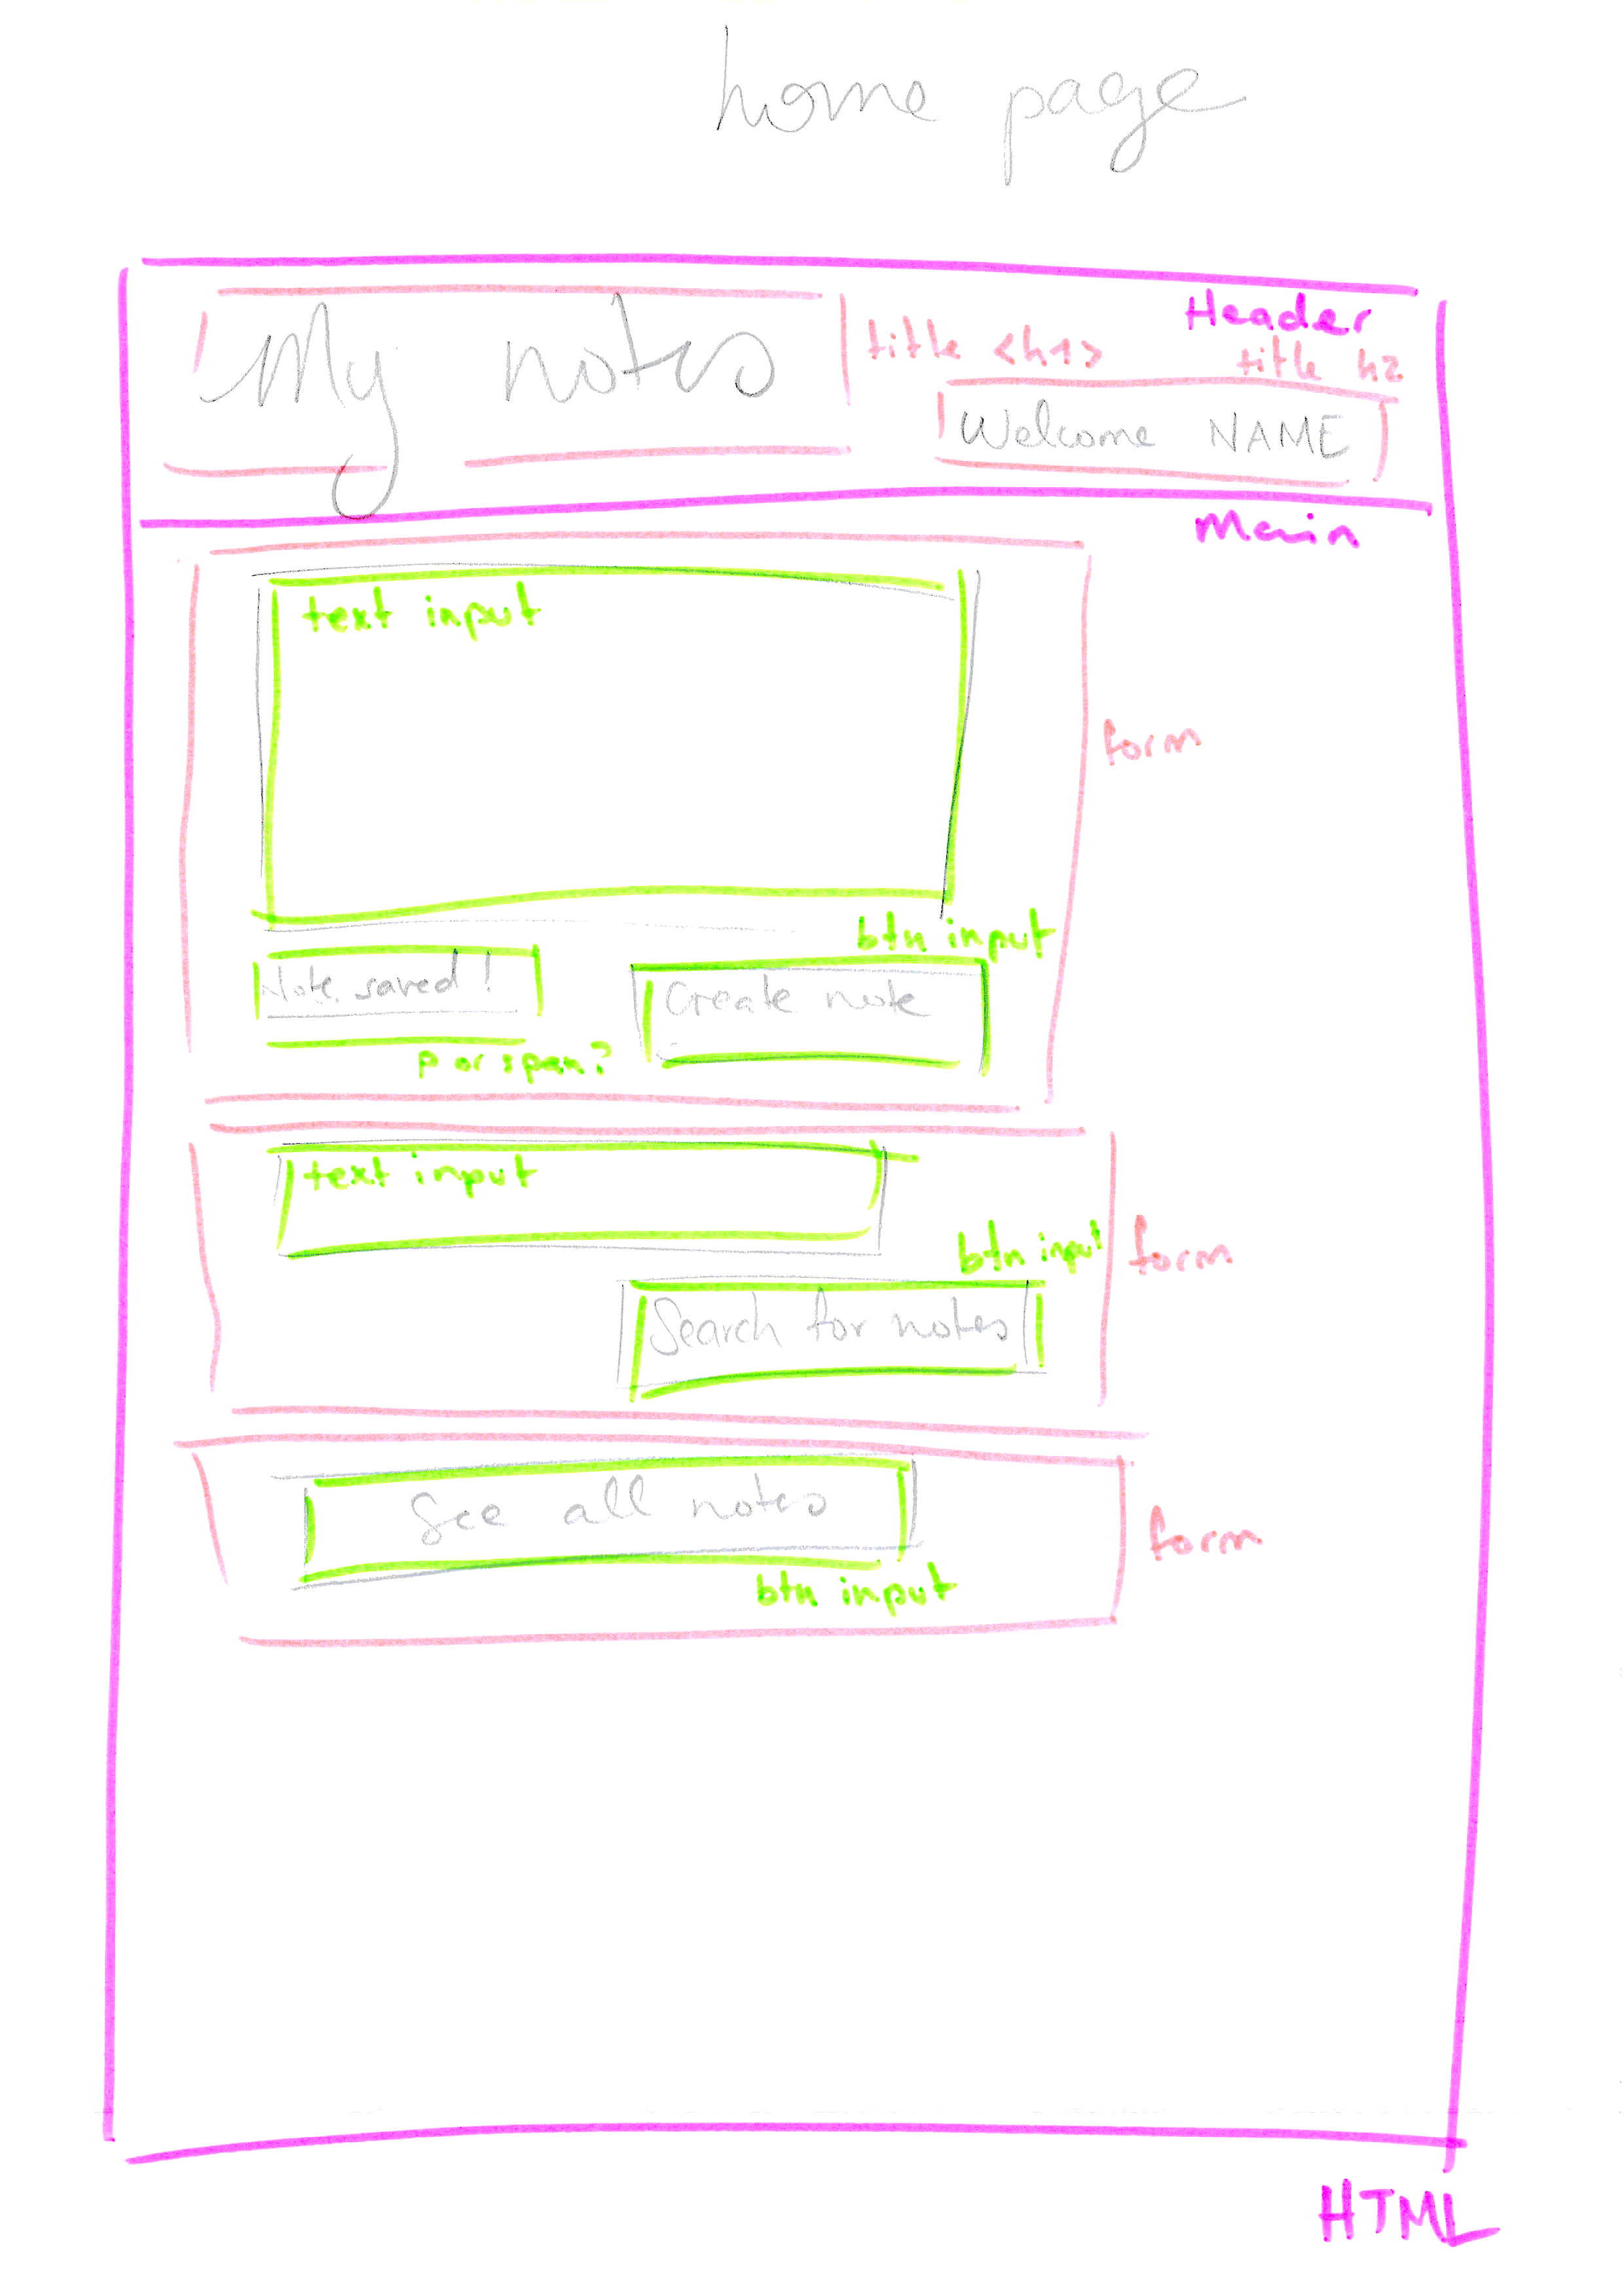 home page
Header
My notes
title <h1>
title h2
Welcome NAME
Main
text input
form
btn input
Note saved!
Create note
p or span?
text input
btn input
form
Search for notes
See all notes
form
btn input
HTML